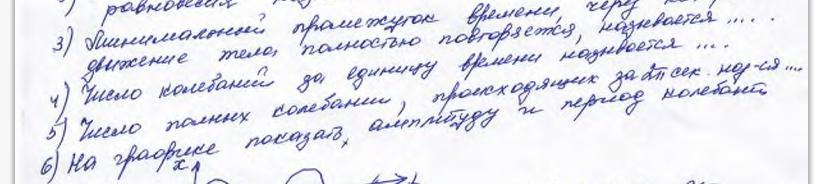 равновесия
3) Минимальный промежуток времени, через
движение тела полностью повторяется, называется ....
4) Число колебаний за единицу времени называется ....
5) Число полных колебаний, происходящих за 2π сек. наз-ся ....
6) На графике показать амплитуду и период колебаний
x